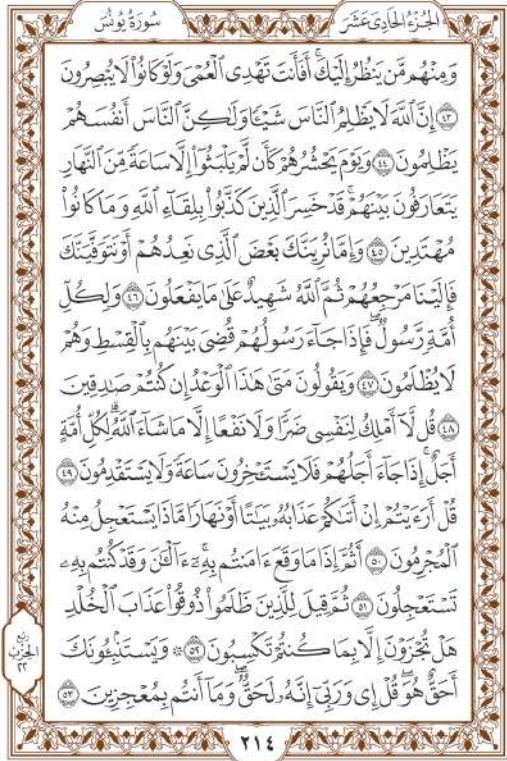 الجُزءُ الحَادِى عَشَرَ
سُورَةُ يُونُسَ
وَمِنْهُم مَّن يَنظُرُ إِلَيْكَۚ أَفَأَنتَ تَهْدِى ٱلْعُمْىَ وَلَوْ كَانُوا۟ لَا يُبْصِرُونَ
٤٣ إِنَّ ٱللَّهَ لَا يَظْلِمُ ٱلنَّاسَ شَيْـًٔا وَلَـٰكِنَّ ٱلنَّاسَ أَنفُسَهُمْ
يَظْلِمُونَ ٤٤ وَيَوْمَ يَحْشُرُهُمْ كَأَن لَّمْ يَلْبَثُوٓا۟ إِلَّا سَاعَةً مِّنَ ٱلنَّهَارِ
يَتَعَارَفُونَ بَيْنَهُمْۚ قَدْ خَسِرَ ٱلَّذِينَ كَذَّبُوا۟ بِلِقَآءِ ٱللَّهِ وَمَا كَانُوا۟
مُهْتَدِينَ ٤٥ وَإِمَّا نُرِيَنَّكَ بَعْضَ ٱلَّذِى نَعِدُهُمْ أَوْ نَتَوَفَّيَنَّكَ
فَإِلَيْنَا مَرْجِعُهُمْ ثُمَّ ٱللَّهُ شَهِيدٌ عَلَىٰ مَا يَفْعَلُونَ ٤٦ وَلِكُلِّ
أُمَّةٍ رَّسُولٌۖ فَإِذَا جَآءَ رَسُولُهُمْ قُضِىَ بَيْنَهُم بِٱلْقِسْطِ وَهُمْ
لَا يُظْلَمُونَ ٤٧ وَيَقُولُونَ مَتَىٰ هَـٰذَا ٱلْوَعْدُ إِن كُنتُمْ صَـٰدِقِينَ
٤٨ قُل لَّآ أَمْلِكُ لِنَفْسِى ضَرًّا وَلَا نَفْعًا إِلَّا مَا شَآءَ ٱللَّهُۗ لِكُلِّ أُمَّةٍ
أَجَلٌۚ إِذَا جَآءَ أَجَلُهُمْ فَلَا يَسْتَـْٔخِرُونَ سَاعَةً وَلَا يَسْتَقْدِمُونَ ٤٩
قُلْ أَرَءَيْتُمْ إِنْ أَتَىٰكُمْ عَذَابُهُۥ بَيَـٰتًا أَوْ نَهَارًا مَّاذَا يَسْتَعْجِلُ مِنْهُ
ٱلْمُجْرِمُونَ ٥٠ أَثُمَّ إِذَا مَا وَقَعَ ءَامَنتُم بِهِۦٓۚ ءَآلْـَٔـٰنَ وَقَدْ كُنتُم بِهِۦ
تَسْتَعْجِلُونَ ٥١ ثُمَّ قِيلَ لِلَّذِينَ ظَلَمُوا۟ ذُوقُوا۟ عَذَابَ ٱلْخُلْدِ
هَلْ تُجْزَوْنَ إِلَّا بِمَا كُنتُمْ تَكْسِبُونَ ٥٢ ۞ وَيَسْتَنۢبِـُٔونَكَ
أَحَقٌّ هُوَۖ قُلْ إِى وَرَبِّىٓ إِنَّهُۥ لَحَقٌّۖ وَمَآ أَنتُم بِمُعْجِزِينَ ٥٣
رُبع
الحِزْب
٢٢
٢١٤